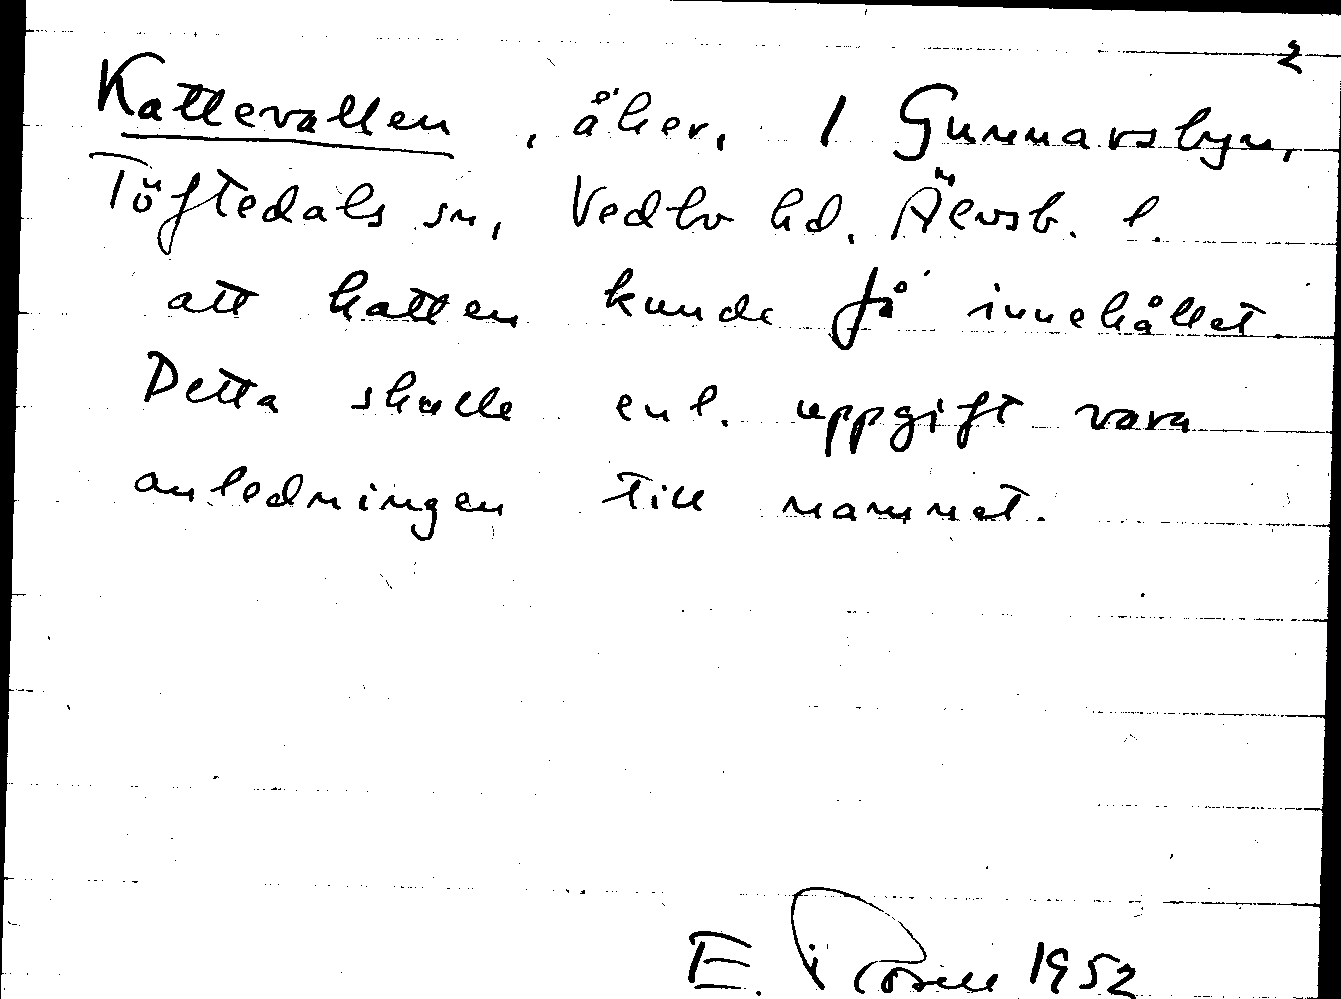 2
Kattevallen, åker, 1 Gunnarsbyn,
Töftedals sn, Vedbo hd. Älvsb. l.
att katten kunde få innehållet.
Detta skulle enl. uppgift vara
anledningen till namnet.
E. 1952